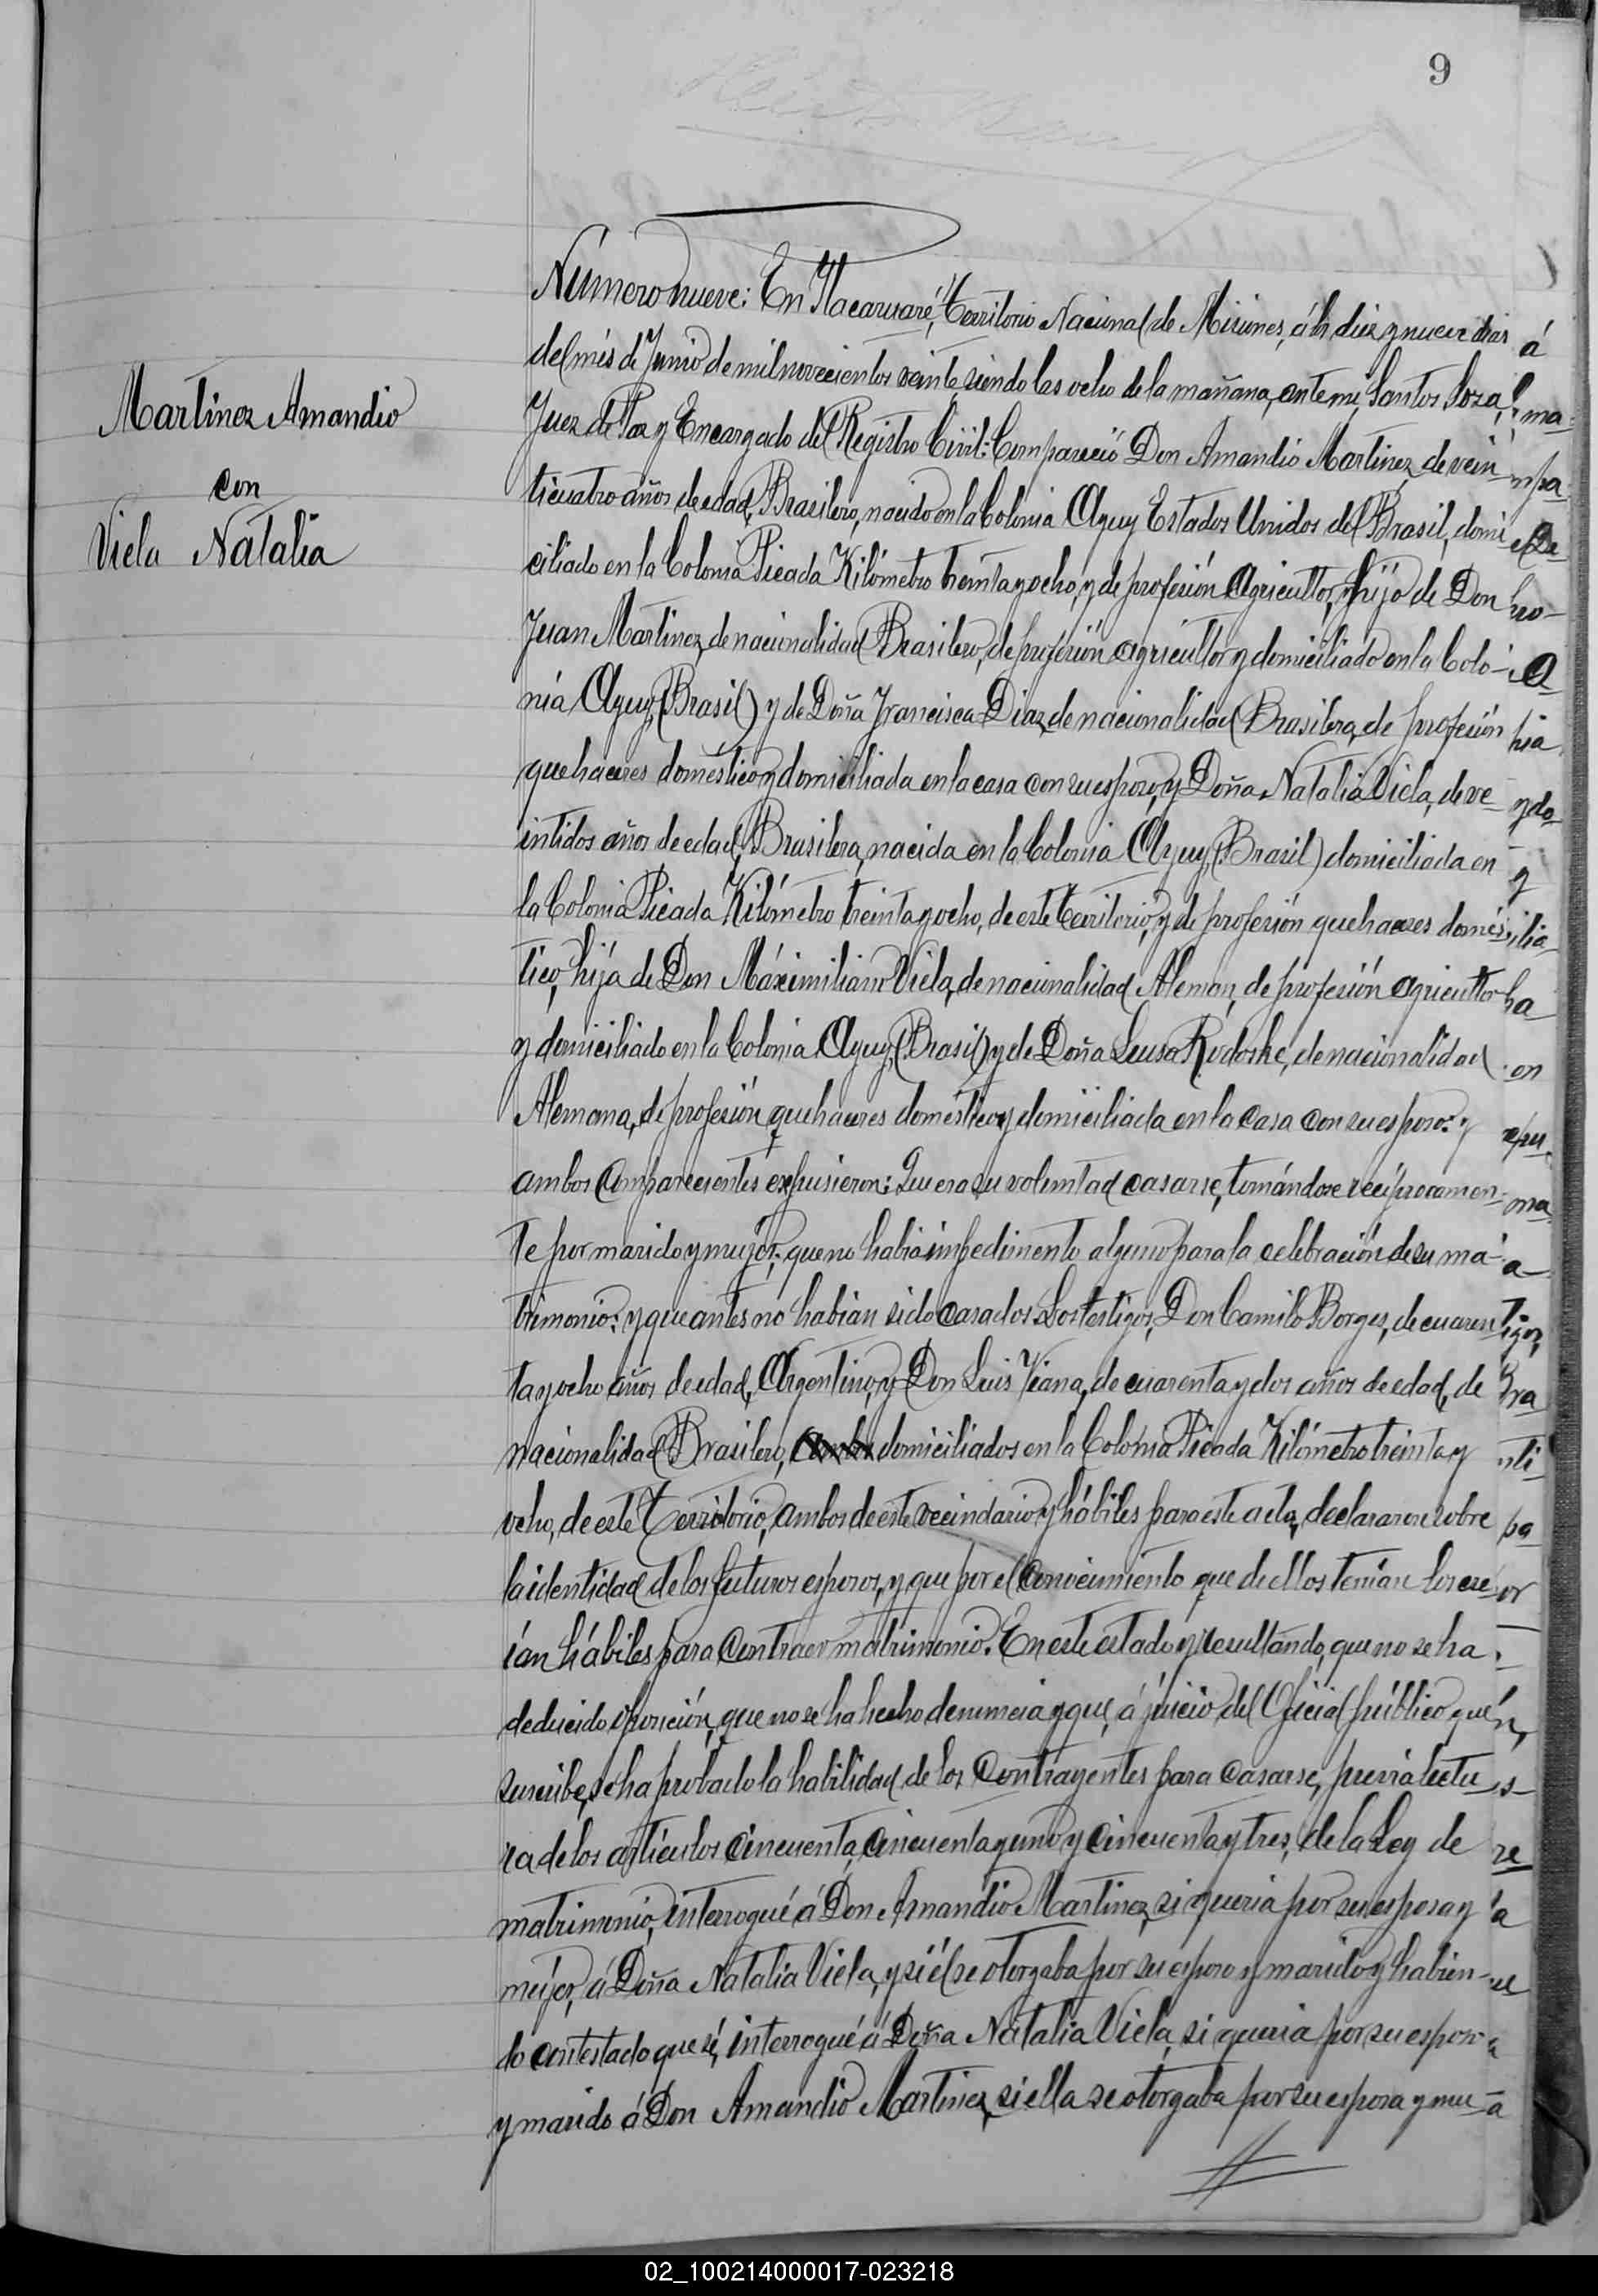 9
Martinez Amandio
con
Viela Natalia
Número nueve: En Itacaruaré, Territorio Nacional de Misiones, á los diez y nueve dias
del més de Junio de mil novecientos veinte siendo las ocho de la mañana, ante mi, Santos Sosa,
Juez de Paz y Encargado del Registro Civil: Compareció Don Amandio Martinez, de vein
ticuatro años de edad, Brasilero, nacido en la Colonia Ayuy Estados Unidos del Brasil, domi
ciliado en la Colonia Picada Kilómetro treinta y ocho, y de profesión Agricultor, hijo de Don
Juan Martinez, de nacionalidad Brasilero, de profesión agricultor y domiciliado en la Colo-
nia Ayuy, (Brasil) y de Doña Francisca Diaz, de nacionalidad Brasilera, de profesión
quehaceres doméstico y domiciliada en la casa con su esposo, y Doña Natalia Viela, de ve-
intidos años de edad, Brasilera, nacida en la Colonia Ayuy, (Brasil) domiciliada en
la Colonia Picada Kilómetro treinta y ocho, de este Territorio, y de profesión quehaceres domés
tico, hija de Don Máximiliano Viela, de nacionalidad Aleman, de profesión agricultor
y domiciliado en la Colonia Ayuy, (Brasil) y de Doña Luisa Rodoske, de nacionalidad
Alemana, de profesión quehaceres doméstico y domiciliada en la casa con su esposo: y
ambos Comparecientes expusieron: Que era su voluntad casarse, tomándose recíprocamen-
te por marido y mujer; que no había impedimento alguno para la celebración de su ma-
trimonio: y que antes no habían sido Casados. Los testigos, Don Camilo Borges, de cuaren
ta y ocho años de edad, Argentino, y Don Luis Viana, de cuarenta y dos años de edad, de
nacionalidad Brasilero, domiciliados en la Colonia Picada Kilómetro treinta y
ocho, de este Territorio, ambos de este vecindario y hábiles para este acto, declararon sobre
la identidad de los futuros esposos, y que por el Conocimiento que de ellos tenían los cre
ían hábiles para Contraer matrimonio. En este estado y resultando, que no se ha
deducido oposición, que no se ha hecho denuncia y que, á juicio del Oficial público que
suscribe, se ha probado la habilidad de los Contrayentes para Casarse, previa lectu
ra de los artículos Cincuenta, Cincuenta y uno y Cincuenta y tres, de la Ley de
matrimonio, interrogué á Don Amandio Martinez, si queria por su esposa y
mujer, á Doña Natalia Viela, y si él se otorgaba por su esposo y marido y habien-
do contestado que sí, interrogué á Doña Natalia Viela, si queria por su esposo
y marido á Don Amandio Martinez, si ella se otorgaba por su esposa y mu-
02_100214000017-023218